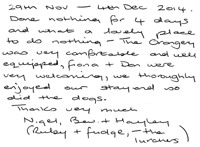 29th Nov – 4th Dec 2014.
Done nothing for 4 days
and what a lovely place
to do nothing – The Grangery
was very comfortable and well
equipped, Fiona + Don were
very welcoming, we thoroughly
enjoyed our stay and so
did the dogs.
Thanks very much
Nigel, Bev + Hayley
(Ruby + Fudge, – the
lurchers)